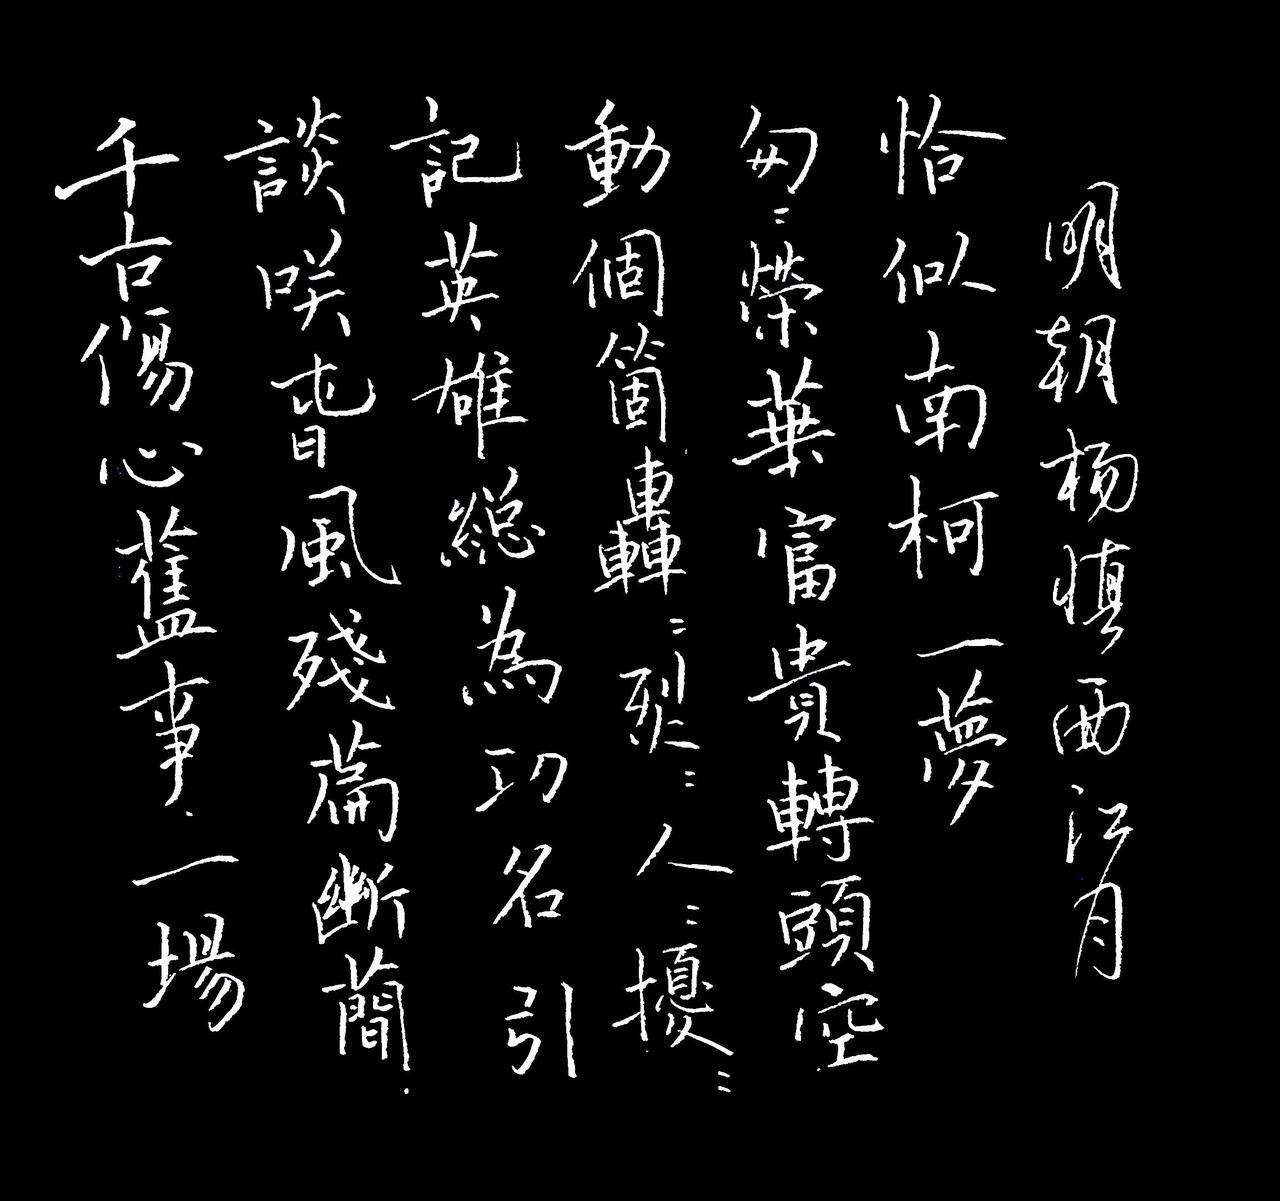 千古傷心舊事.一場
談咲旾風殘篇斷簡.
記英雄緫為功名引
動個箇轟〻烈〻人〻擾〻
匆〻榮華富貴轉頭空
恰似南柯一夢
明朝杨慎西江月